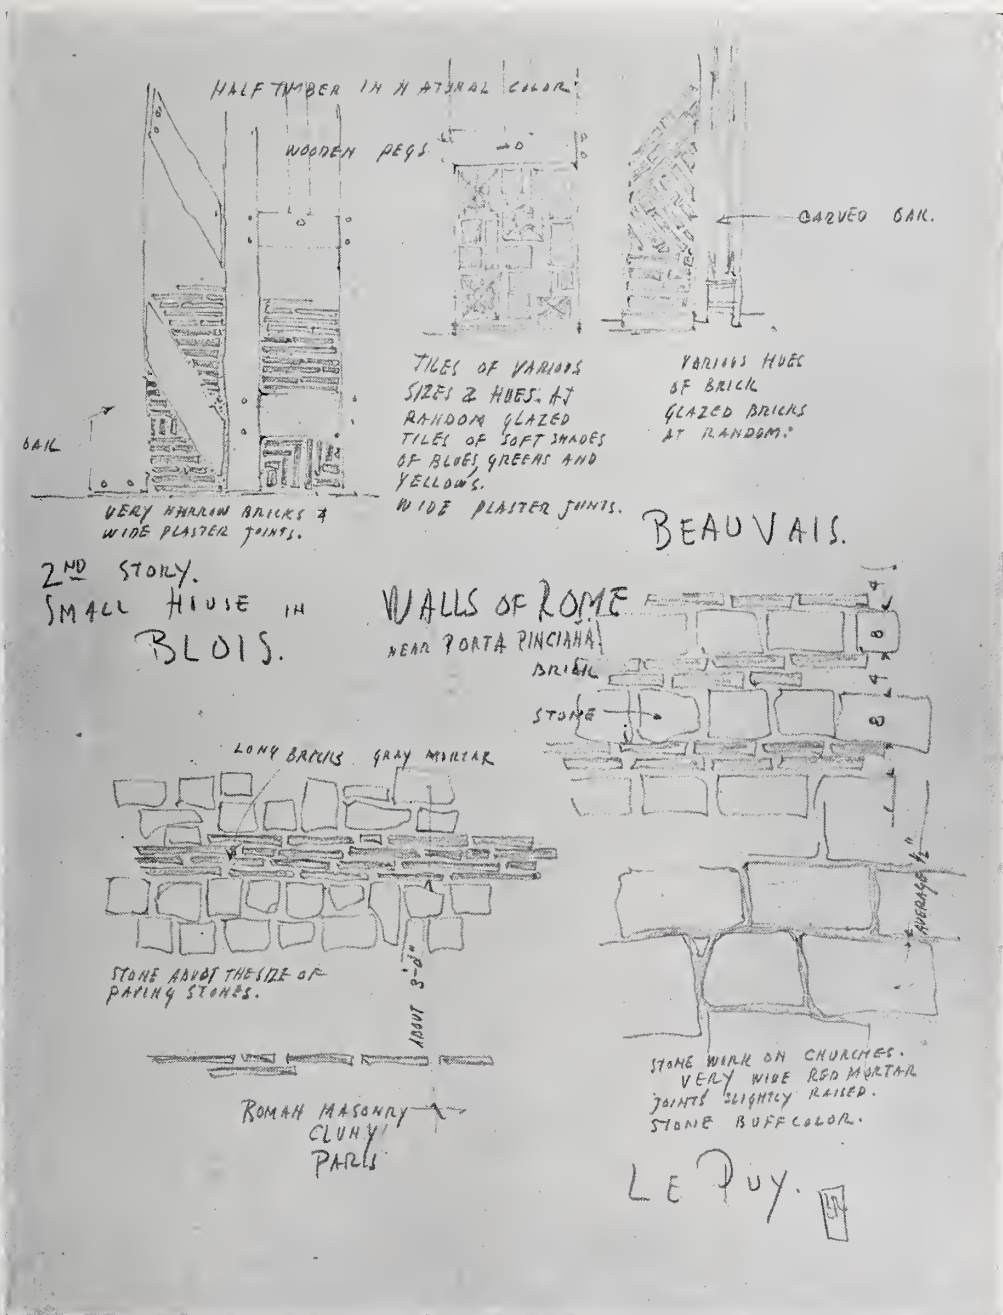 HALF TIMBER IN NATURAL COLOR.
WOODEN PEGS.
CARVED OAK.
OAK
VERY NARROW BRICKS &
WIDE PLASTER JOINTS.
2ND STORY.
SMALL HOUSE IN
BLOIS.
TILES OF VARIOUS
SIZES & HUES. AT
RANDOM GLAZED
TILES OF SOFT SHADES
OF BLUES, GREENS AND
YELLOWS.
WIDE PLASTER JOINTS.
VARIOUS HUES
OF BRICK
GLAZED BRICKS
AT RANDOM.
BEAUVAIS.
WALLS OF ROME
NEAR PORTA PINCIANA
BRICK
STONE
4
8
4
8
LONG BRICKS GRAY MORTAR
STONE ABOUT THE SIZE OF
PAVING STONES.
ABOUT 3'-0"
ROMAN MASONRY
CLUNY
PARIS
AVERAGE 1/2"
STONE WORK ON CHURCHES.
VERY WIDE RED MORTAR
JOINTS SLIGHTLY RAISED.
STONE BUFF COLOR.
LE PUY.